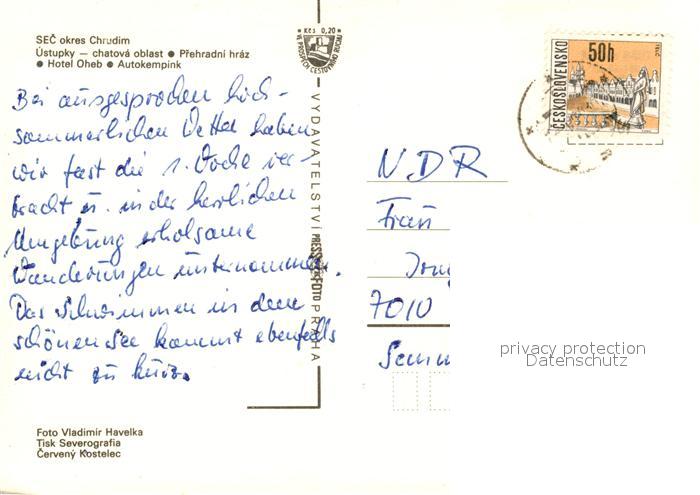 SEČ okres Chrudim
Ústupky — chatová oblast ● Přehradní hráz
● Hotel Oheb ● Autokempink
Kčs 0,20
VE PROSPĚCH CESTOVNÍHO RUCHU
ČESKOSLOVENSKO
50h
TELČ
Bei ausgesprochen hoch-
sommerlichen Wetter haben
wir fast die 1. Woche ver-
bracht u. in der herrlichen
Umgebung erholsame
Wanderungen unternommen.
Das Schwimmen in dem
schönen See kommt ebenfalls
nicht zu kurz.
VYDAVATELSTVÍ PRESSFOTO PRAHA
NDR
Frau
7010
privacy protection
Datenschutz
Foto Vladimír Havelka
Tisk Severografia
Červený Kostelec